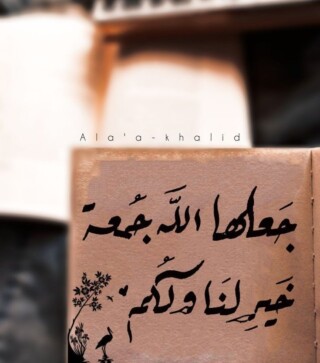 Ala'a-khalid
جَعلها اللَّه جُمعة
خَيرٍ لنَا ولكُم